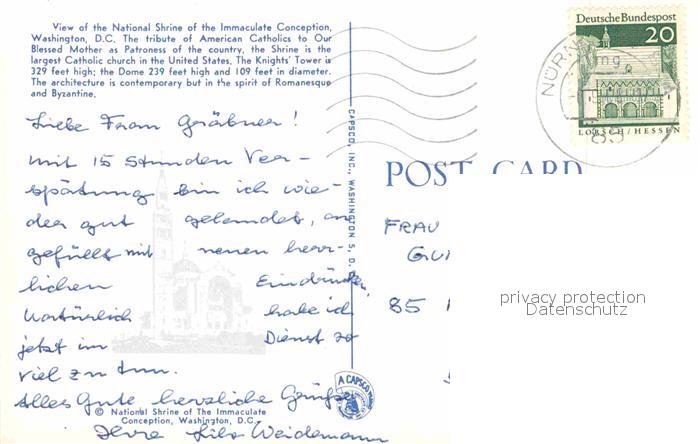 View of the National Shrine of the Immaculate Conception,
Washington, D.C. The tribute of American Catholics to Our
Blessed Mother as Patroness of the country, the Shrine is the
largest Catholic church in the United States. The Knights' Tower is
329 feet high; the Dome 239 feet high and 109 feet in diameter.
The architecture is contemporary but in the spirit of Romanesque
and Byzantine.
Liebe Frau Gräbner!
mit 15 Stunden Ver-
spätung bin ich wie-
der gut gelandet, an
gefüllt mit neuen herr-
lichen Eindrücken,
natürlich habe ich
jetzt im Dienst so
viel zu tun.
Alles Gute herzliche Grüße
Ihre Weidemann
© National Shrine of The Immaculate
Conception, Washington, D.C.
CAPSCO, INC., WASHINGTON 5, D.C.
A CAPSCO
POST CARD
FRAU
85
Deutsche Bundespost
20
LORSCH/HESSEN
NÜRN
85
privacy protection
Datenschutz